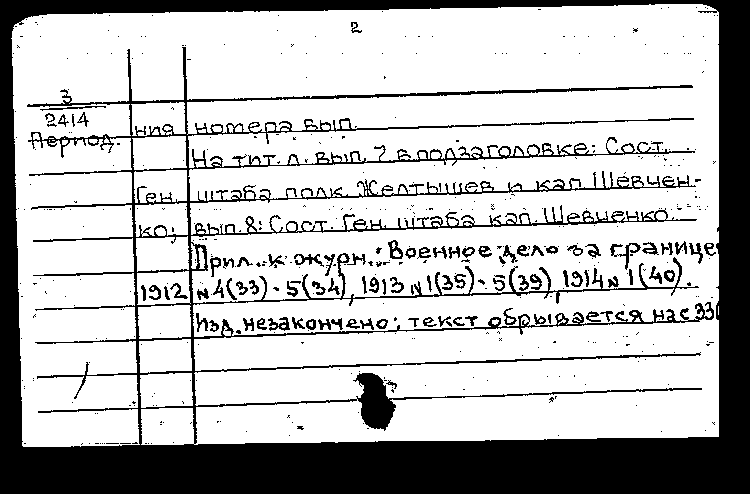 2
3
2414
Период.
ния номера вып.
На тит. л. вып. 7 в подзаголовке: Сост.
Ген. штаба полк. Желтышев и кап. Шевчен-
ко; вып. 8: Сост. Ген. штаба кап. Шевченко.
Прил. к журн.: Военное дело за границей
1912 № 4(33) - 5(34), 1913 № 1(35) - 5(39), 1914 № 1(40).
Изд. незакончено; текст обрывается на с 33